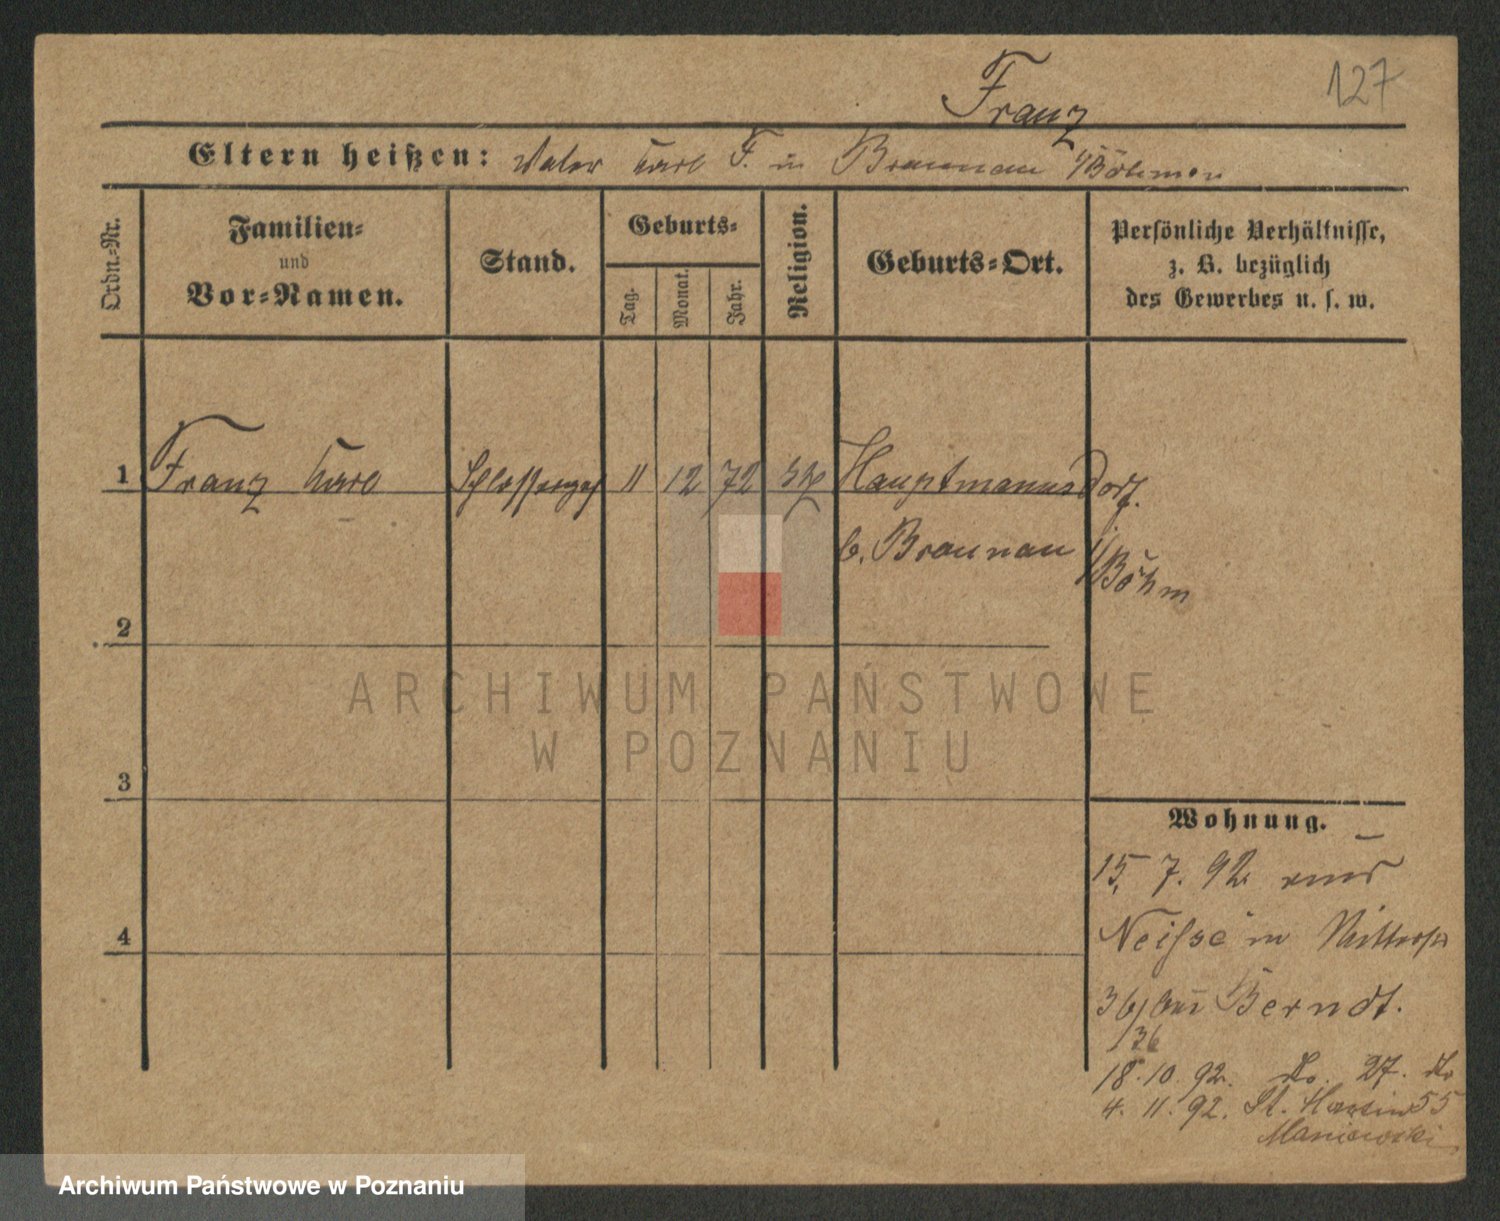 Franz
127
Eltern heißen: Vater Karl F. in Braunau i/Böhmen
Ordn.-Nr.
Familien- und Vor-Namen.
Stand.
Geburts-
Tag.
Monat.
Jahr.
Religion.
Geburts-Ort.
Persönliche Verhältnisse,
z. B. bezüglich
des Gewerbes u. s. w.
1 Franz Karl Schlosserges 11 12 72 Hauptmannsdorf.
b. Braunau i/Böhm
2
ARCHIWUM PAŃSTWOWE
W POZNANIU
3
Wohnung.
15. 7. 92 aus
Neisse in Ritterstr
36 bei Berndt.
/36
18. 10. 92. do. 27. do
4. 11. 92. St. Martin 55
Maniewski
4
Archiwum Państwowe w Poznaniu